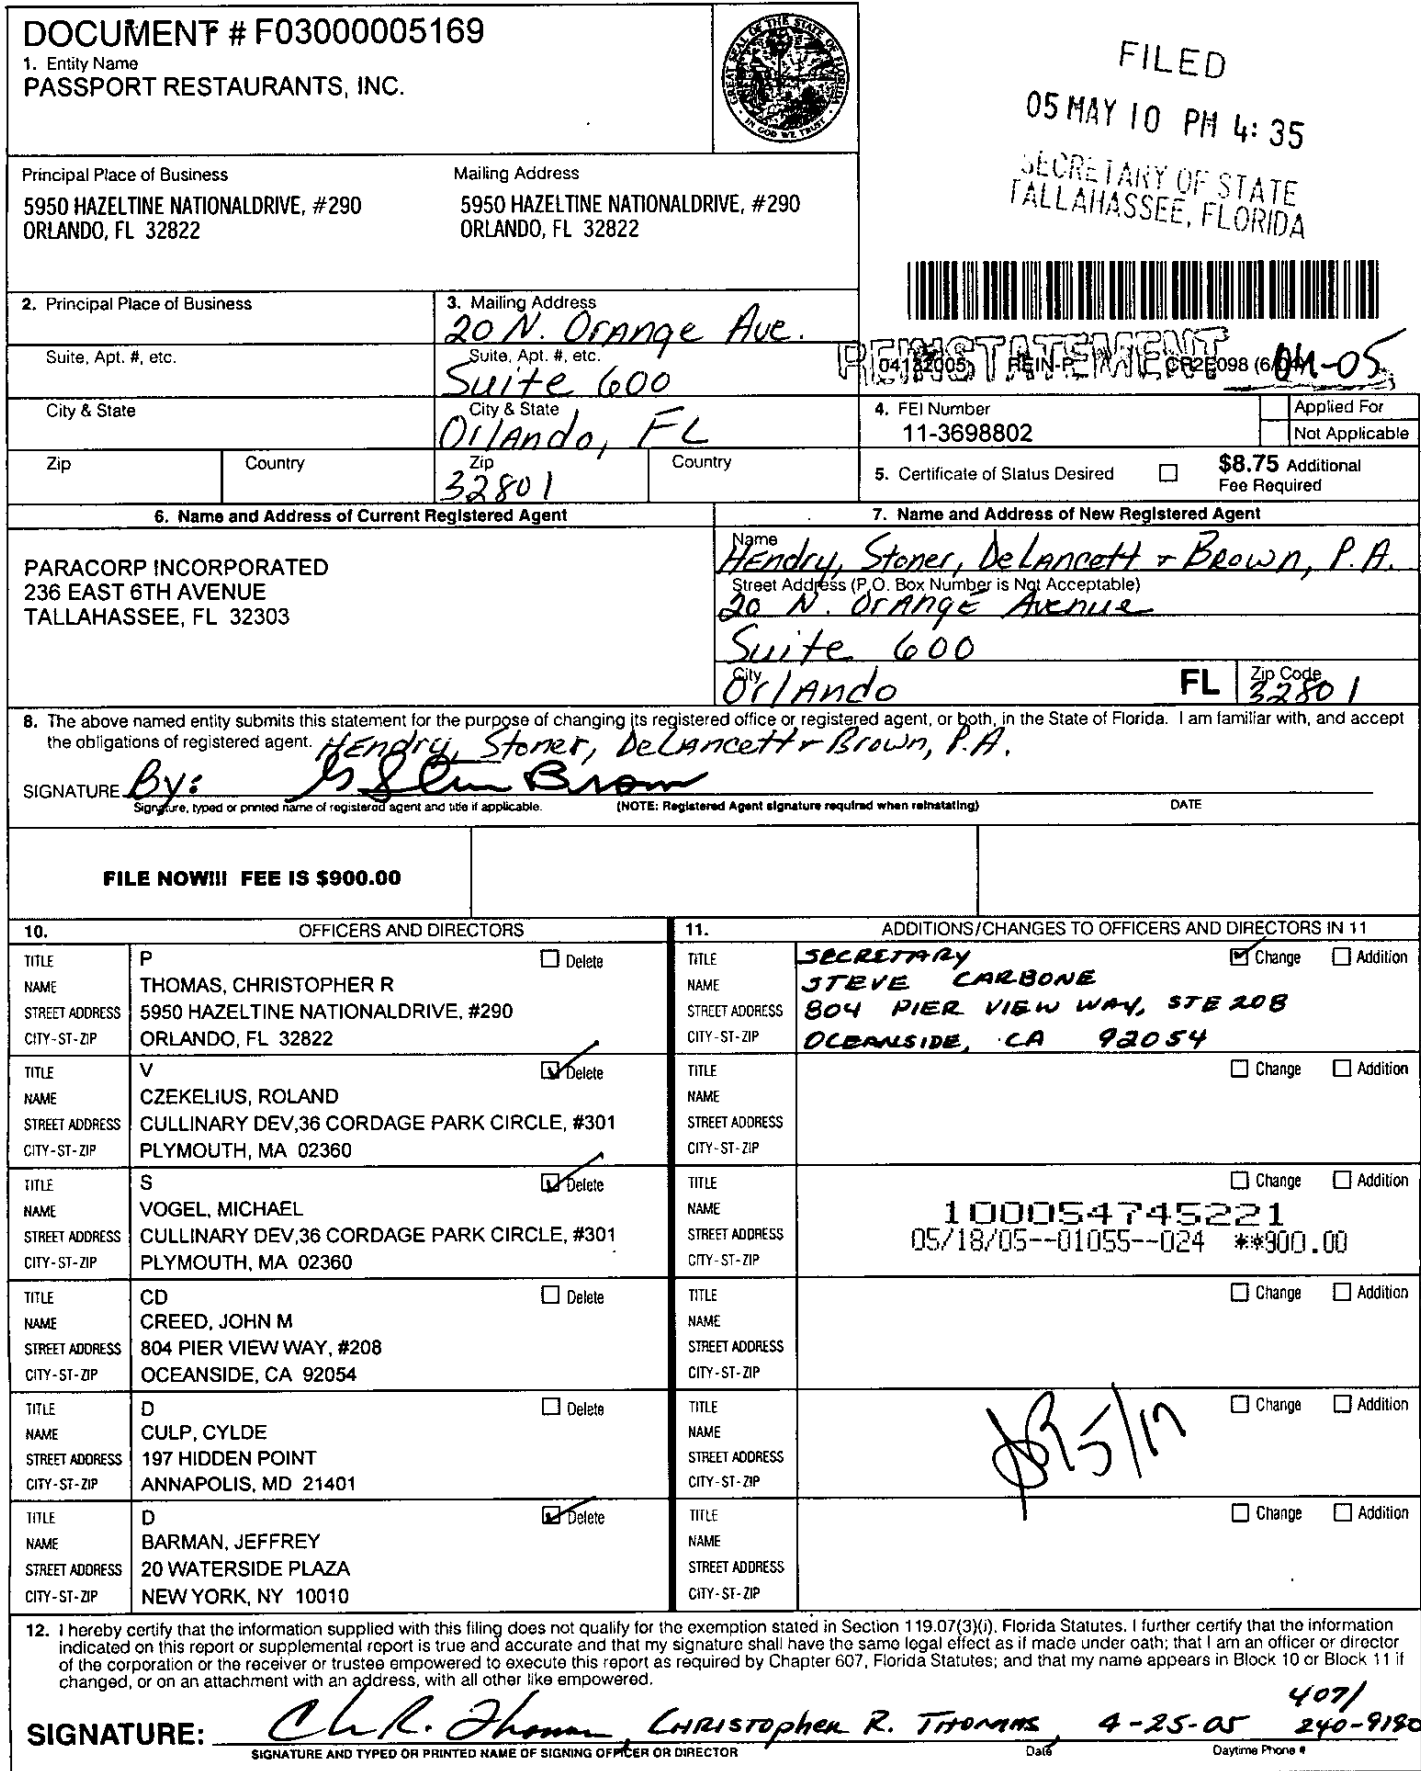 DOCUMENT # F03000005169
1. Entity Name
PASSPORT RESTAURANTS, INC.
GREAT SEAL OF THE STATE OF FLORIDA
IN GOD WE TRUST
FILED
05 MAY 10 PM 4:35
SECRETARY OF STATE
TALLAHASSEE, FLORIDA
Principal Place of Business
5950 HAZELTINE NATIONALDRIVE, #290
ORLANDO, FL 32822
Mailing Address
5950 HAZELTINE NATIONALDRIVE, #290
ORLANDO, FL 32822
2. Principal Place of Business
Suite, Apt. #, etc.
City & State
Zip Country
3. Mailing Address
20 N. Orange Ave.
Suite, Apt. #, etc.
Suite 600
City & State
Orlando, FL
Zip Country
32801
REINSTATEMENT 04-05
04132005 REIN-P CR2E098
4. FEI Number
11-3698802
Applied For
Not Applicable
5. Certificate of Status Desired
$8.75 Additional
Fee Required
6. Name and Address of Current Registered Agent
PARACORP INCORPORATED
236 EAST 6TH AVENUE
TALLAHASSEE, FL 32303
7. Name and Address of New Registered Agent
Name
Hendry, Stoner, DeLancett + Brown, P.A.
Street Address (P.O. Box Number is Not Acceptable)
20 N. Orange Avenue
Suite 600
City FL Zip Code
Orlando 32801
8. The above named entity submits this statement for the purpose of changing its registered office or registered agent, or both, in the State of Florida. I am familiar with, and accept
the obligations of registered agent. Hendry, Stoner, DeLancett + Brown, P.A.
SIGNATURE By: Brown
Signature, typed or printed name of registered agent and title if applicable. (NOTE: Registered Agent signature required when reinstating) DATE
FILE NOW!!! FEE IS $900.00
10. OFFICERS AND DIRECTORS
TITLE P Delete
NAME THOMAS, CHRISTOPHER R
STREET ADDRESS 5950 HAZELTINE NATIONALDRIVE, #290
CITY-ST-ZIP ORLANDO, FL 32822
TITLE V Delete
NAME CZEKELIUS, ROLAND
STREET ADDRESS CULLINARY DEV,36 CORDAGE PARK CIRCLE, #301
CITY-ST-ZIP PLYMOUTH, MA 02360
TITLE S Delete
NAME VOGEL, MICHAEL
STREET ADDRESS CULLINARY DEV,36 CORDAGE PARK CIRCLE, #301
CITY-ST-ZIP PLYMOUTH, MA 02360
TITLE CD Delete
NAME CREED, JOHN M
STREET ADDRESS 804 PIER VIEW WAY, #208
CITY-ST-ZIP OCEANSIDE, CA 92054
TITLE D Delete
NAME CULP, CYLDE
STREET ADDRESS 197 HIDDEN POINT
CITY-ST-ZIP ANNAPOLIS, MD 21401
TITLE D Delete
NAME BARMAN, JEFFREY
STREET ADDRESS 20 WATERSIDE PLAZA
CITY-ST-ZIP NEW YORK, NY 10010
11. ADDITIONS/CHANGES TO OFFICERS AND DIRECTORS IN 11
TITLE SECRETARY Change Addition
NAME STEVE CARBONE
STREET ADDRESS 804 PIER VIEW WAY, STE 208
CITY-ST-ZIP OCEANSIDE, CA 92054
TITLE Change Addition
NAME
STREET ADDRESS
CITY-ST-ZIP
TITLE Change Addition
NAME 100054745221
STREET ADDRESS 05/18/05--01055--024 **900.00
CITY-ST-ZIP
TITLE Change Addition
NAME
STREET ADDRESS
CITY-ST-ZIP
TITLE Change Addition
NAME
STREET ADDRESS 5/17
CITY-ST-ZIP
TITLE Change Addition
NAME
STREET ADDRESS
CITY-ST-ZIP
12. I hereby certify that the information supplied with this filing does not qualify for the exemption stated in Section 119.07(3)(i), Florida Statutes. I further certify that the information
indicated on this report or supplemental report is true and accurate and that my signature shall have the same legal effect as if made under oath; that I am an officer or director
of the corporation or the receiver or trustee empowered to execute this report as required by Chapter 607, Florida Statutes; and that my name appears in Block 10 or Block 11 if
changed, or on an attachment with an address, with all other like empowered.
SIGNATURE: Ch R. Thomas CHRISTOPHER R. THOMAS 4-25-05 407/240-9180
SIGNATURE AND TYPED OR PRINTED NAME OF SIGNING OFFICER OR DIRECTOR Date Daytime Phone #